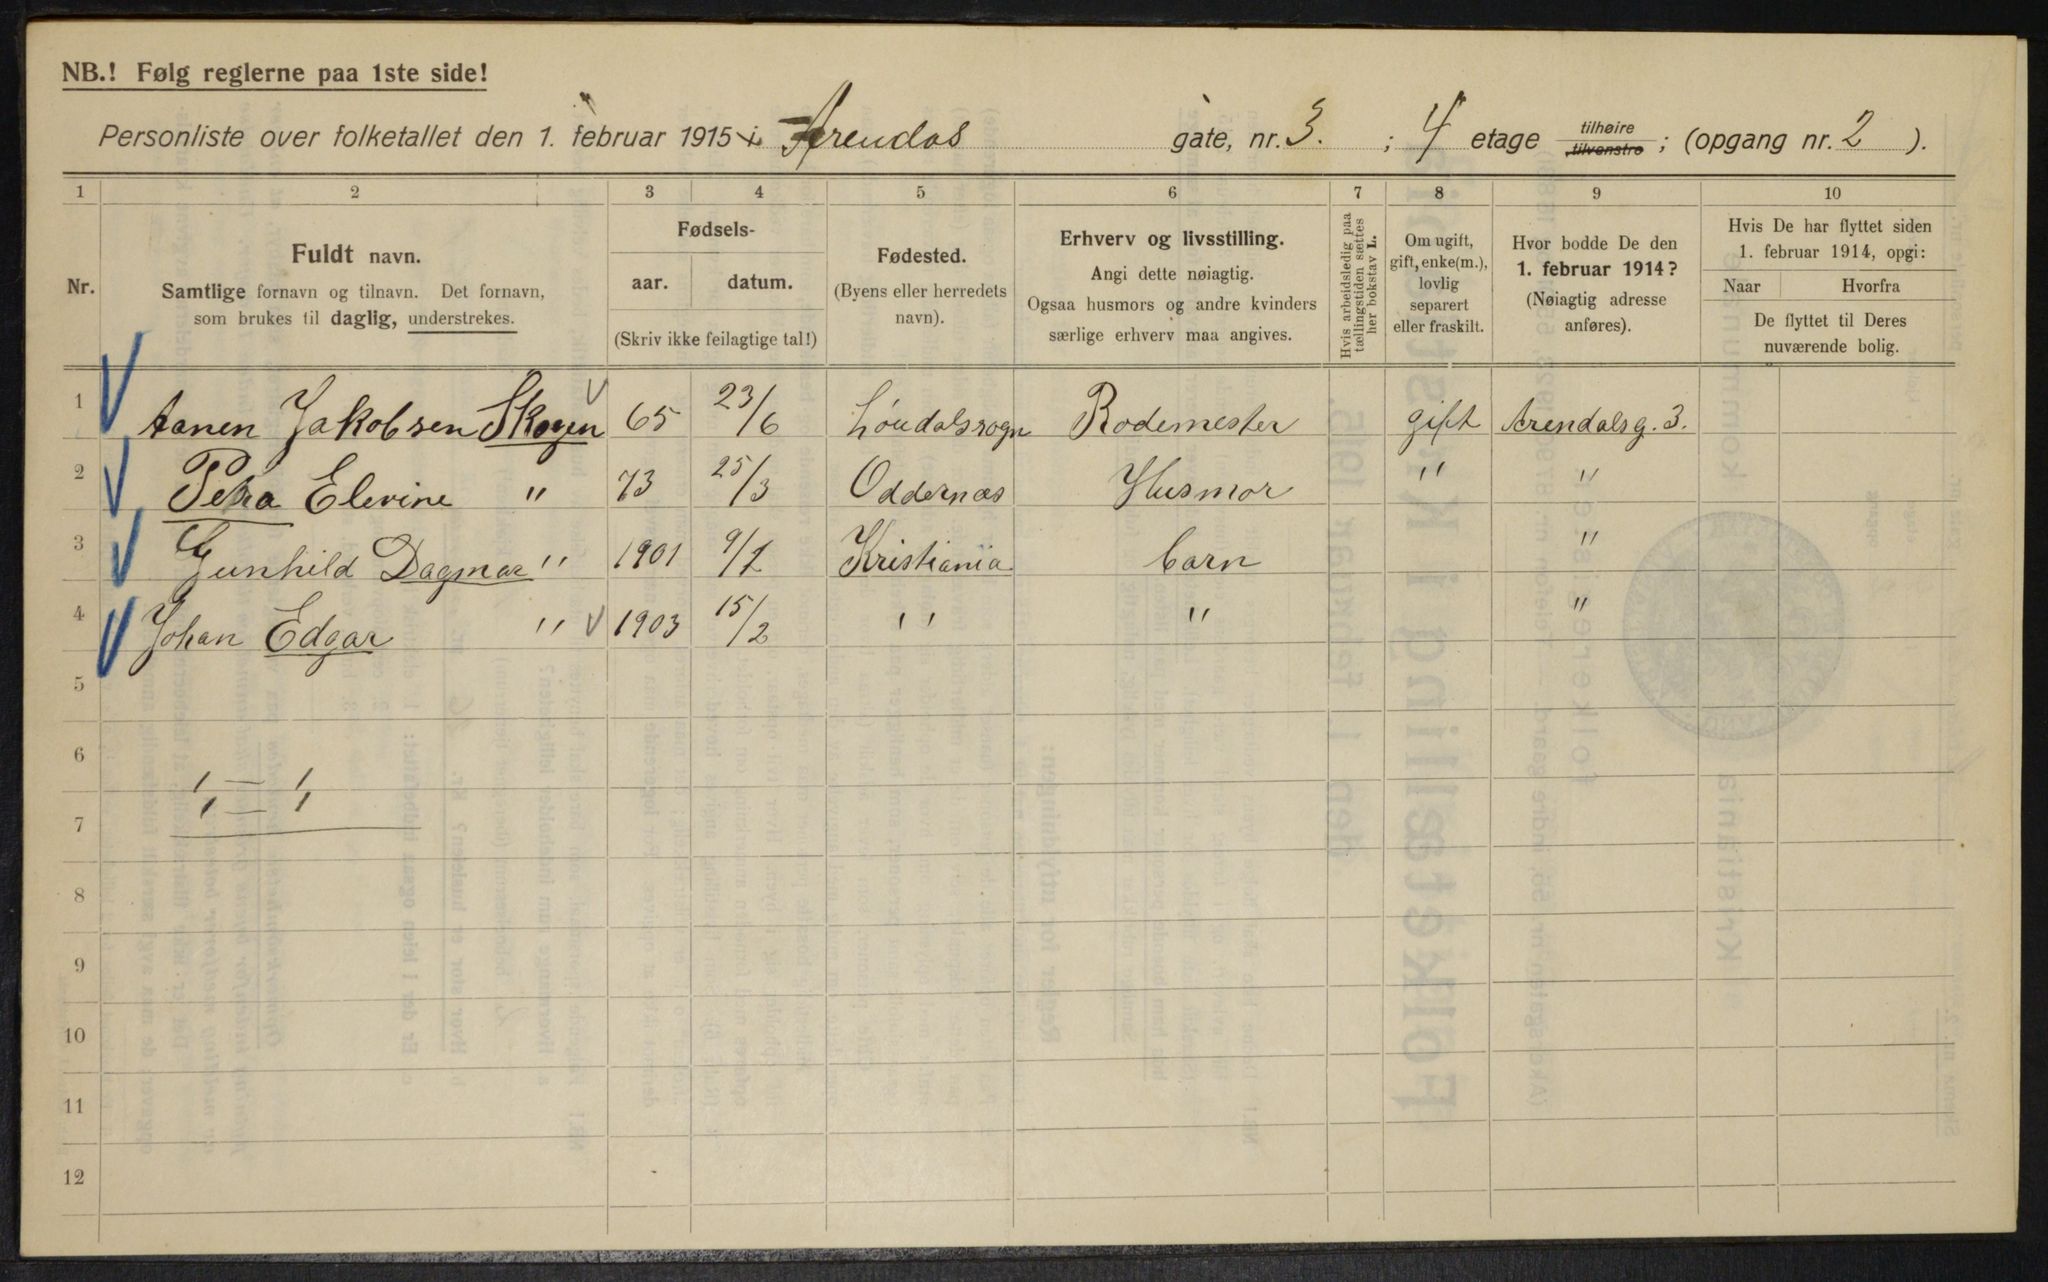 NB.! Følg reglerne paa 1ste side!
Personliste over folketallet den 1. februar 1915 i Arendas gate, nr. 3. ; 4 etage tilhøire tilvenstre ; (opgang nr. 2 ).
1 2 3 4 5 6 7 8 9 10
Nr.
Fuldt navn.
Samtlige fornavn og tilnavn. Det fornavn,
som brukes til daglig, understrekes.
Fødsels-
aar. datum.
(Skriv ikke feilagtige tal!)
Fødested.
(Byens eller herredets
navn).
Erhverv og livsstilling.
Angi dette nøiagtig.
Ogsaa husmors og andre kvinders
særlige erhverv maa angives.
Hvis arbeidsledig paa
tællingstiden sættes
her bokstav L.
Om ugift,
gift, enke(m.),
lovlig
separert
eller fraskilt.
Hvor bodde De den
1. februar 1914?
(Nøiagtig adresse
anføres).
Hvis De har flyttet siden
1. februar 1914, opgi:
Naar Hvorfra
De flyttet til Deres
nuværende bolig.
1 Aanen Jakobsen Skogen 65 23/6 Løudalssogn Rodemester gift Arendalsg. 3.
2 Petra Elevine " 73 25/3 Oddernæs Husmor " "
3 Gunhild Dagmar " 1901 9/1 Kristiania barn "
4 Johan Edgar " 1903 15/2 " " "
5
6
7
8
9
10
11
12